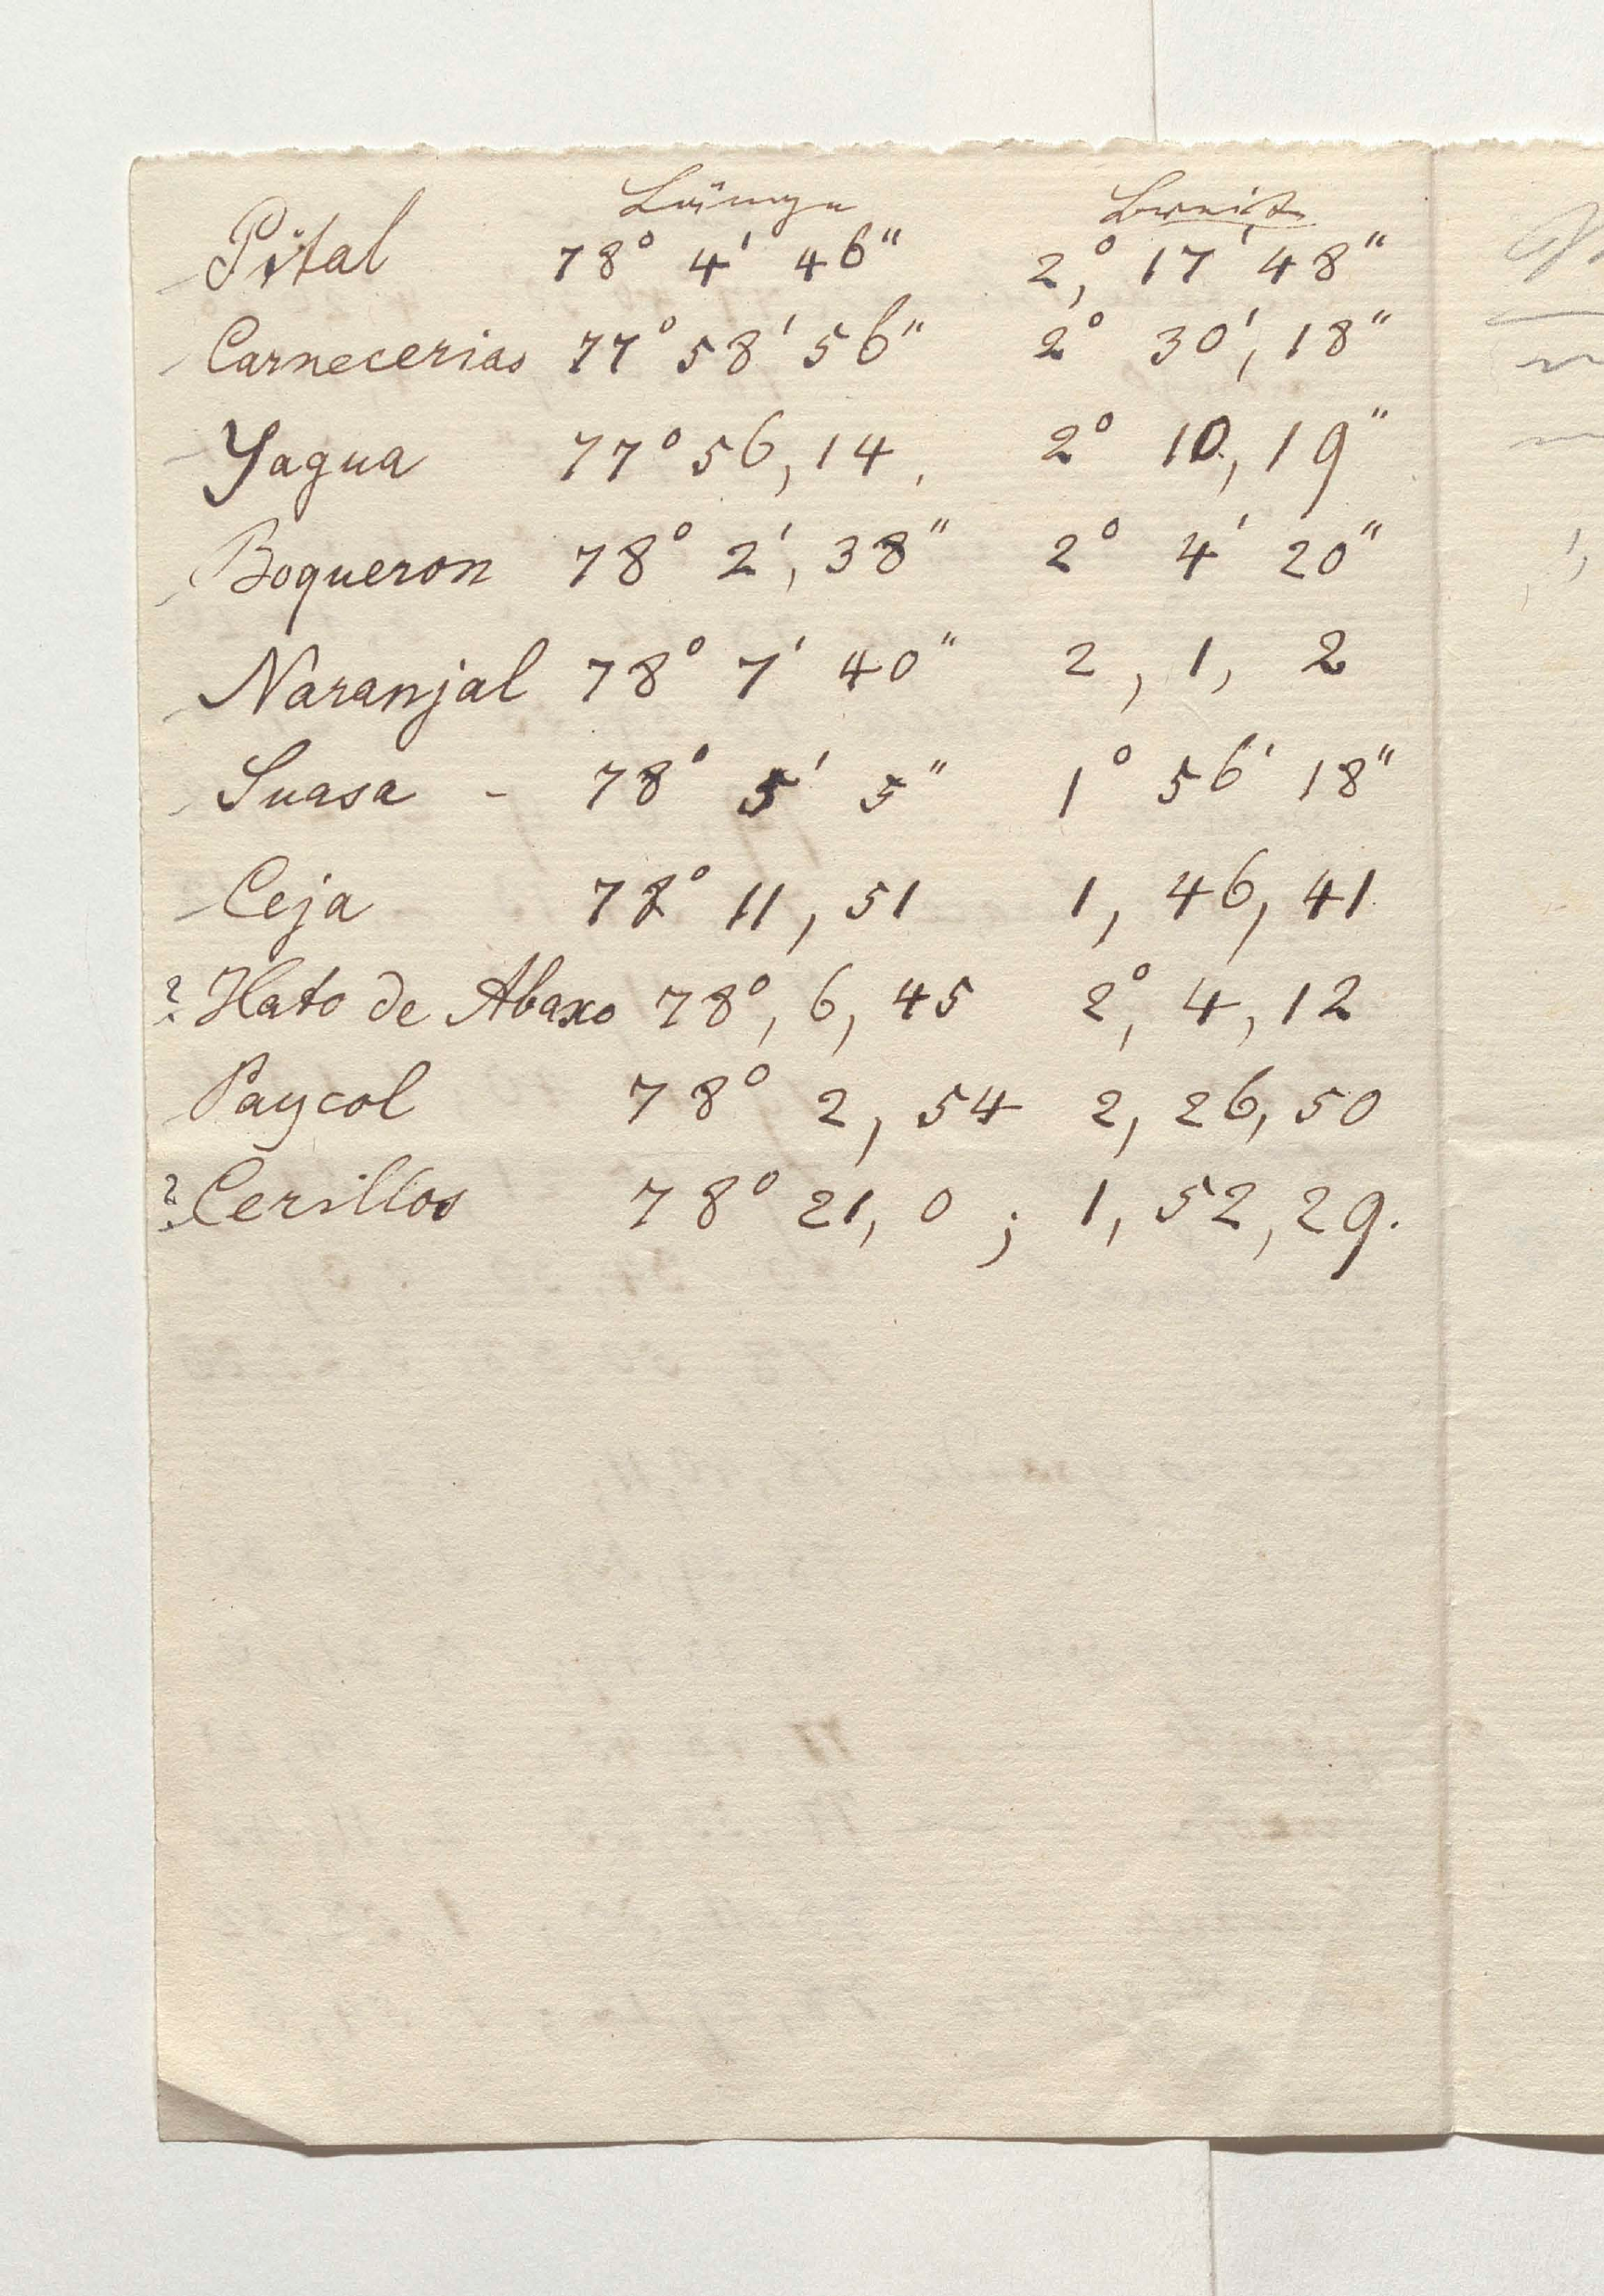 Länge Breite
Pital 78° 4' 46" 2,° 17' 48"
Carnecerias 77° 58' 56" 2° 30', 18"
Yagua 77° 56, 14, 2° 10, 19"
Boqueron 78° 2', 38" 2° 4' 20"
Naranjal 78° 7' 40" 2, 1, 2
Suasa - 78° 5' 5" 1° 56' 18"
Ceja 78° 11, 51 1, 46, 41
? Hato de Abaxo 78°, 6, 45 2,° 4, 12
Paycol 78° 2, 54 2, 26, 50
? Cerillos 78° 21, 0 ; 1, 52, 29.